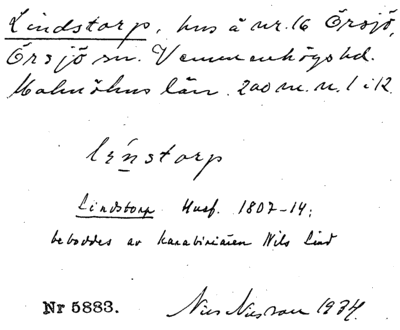 Lindstorp, hus å nr. 16 Örsjö,
Örsjö sn. Vemmenhögs hd.
Malmöhus län. 200 m. n. 1 i 12.
línstorp
Lindstorp Husf. 1807-14;
beboddes av karabiniären Nils Lind
Nr 5883. Nils Nilsson 1934.